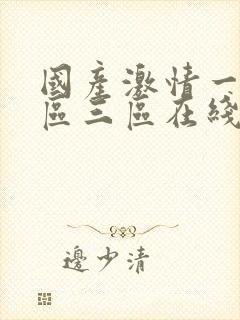 國產激情一
區三區在綫
邊少清